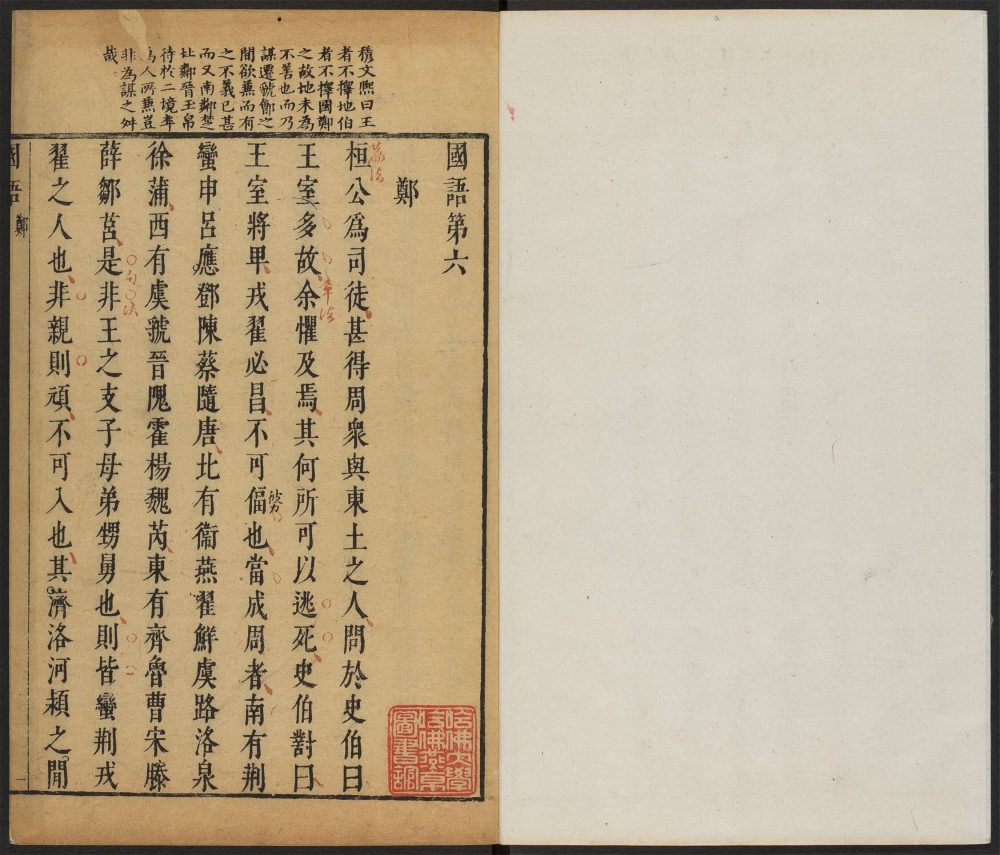 穆文熈曰王
者不擇地伯
者不擇國鄭
之故地未為
不善也而乃
謀遷虢鄶之
間欲兼而有
之不義已甚
而又南鄰楚
北鄰晉玉帛
待於二境卒
為人所兼豈
非為謀之舛
哉
國語第六
鄭
桓公爲司徒甚得周衆與東土之人問於史伯曰
王室多故余懼及焉其何所可以逃死史伯對曰
章法
王室將卑戎翟必昌不可偪也當成周者南有荆
蠻申呂應鄧陳蔡隨唐北有衛燕翟鮮虞路洛泉
徐蒲西有虞虢晉隗霍楊魏芮東有齊魯曹宋滕
句法
薛鄒莒是非王之支子母弟甥舅也則皆蠻荆戎
翟之人也非親則頑不可入也其濟洛河潁之閒
國語 鄭
一
哈佛大學
哈佛燕京
圖書館